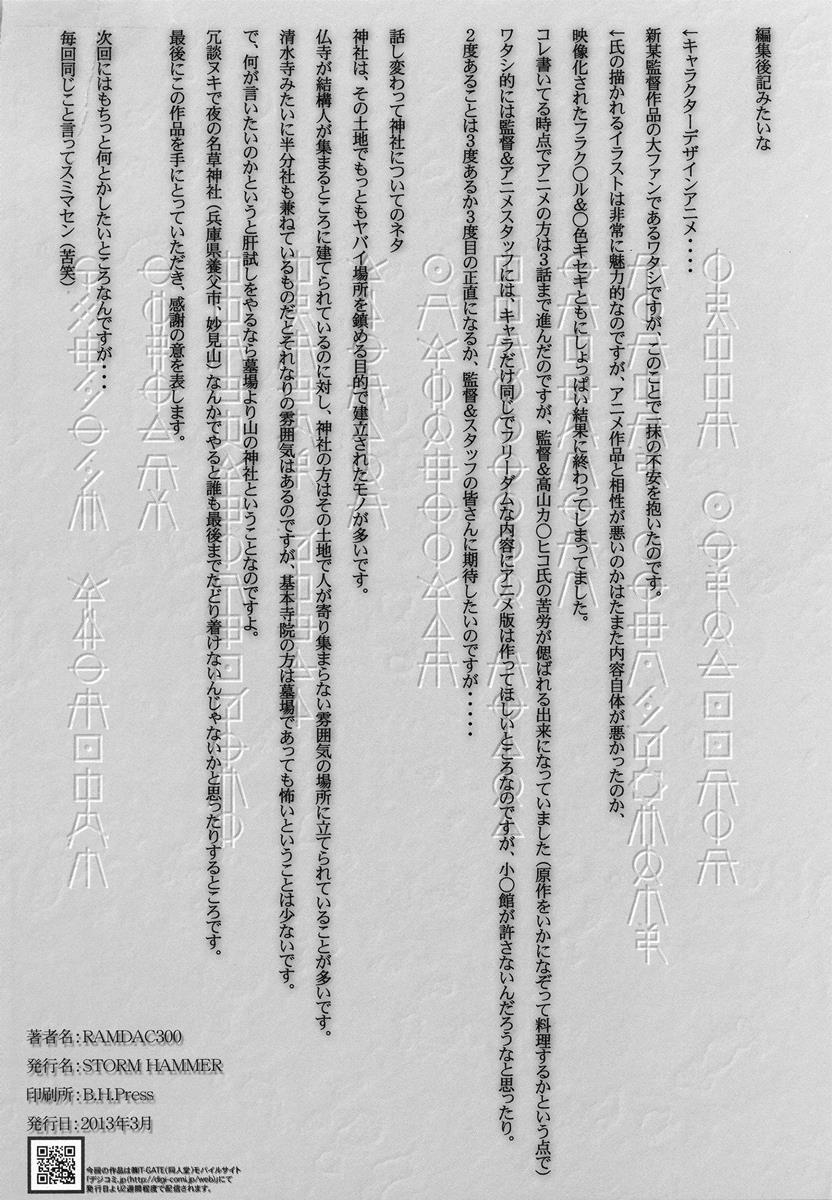 編集後記みたいな
←キャラクターデザインアニメ・・・・
新某監督作品の大ファンであるワタシですが、このことで一抹の不安を抱いたのです。
←氏の描かれるイラストは非常に魅力的なのですが、アニメ作品と相性が悪いのかはたまた内容自体が悪かったのか、
映像化されたフラク〇ル&〇色キセキともにしょっぱい結果に終わってしまってました。
コレ書いてる時点でアニメの方は3話まで進んだのですが、監督&高山カ〇ヒコ氏の苦労が偲ばれる出来になっていました(原作をいかになぞって料理するかという点で)
ワタシ的には監督&アニメスタッフには、キャラだけ同じでフリーダムな内容にアニメ版は作ってほしいところなのですが、小〇館が許さないんだろうなと思ったり。
2度あることは3度あるか3度目の正直になるか、監督&スタッフの皆さんに期待したいのですが・・・・・
話し変わって神社についてのネタ
神社は、その土地でもっともヤバイ場所を鎮める目的で建立されたモノが多いです。
仏寺が結構人が集まるところに建てられているのに対し、神社の方はその土地で人が寄り集まらない雰囲気の場所に立てられていることが多いです。
清水寺みたいに半分社も兼ねているものだとそれなりの雰囲気はあるのですが、基本寺院の方は墓場であっても怖いということは少ないです。
で、何が言いたいのかというと肝試しをやるなら墓場より山の神社ということなのですよ。
冗談ヌキで夜の名草神社(兵庫県養父市、妙見山)なんかでやると誰も最後までたどり着けないんじゃないかと思ったりするところです。
最後にこの作品を手にとっていただき、感謝の意を表します。
次回にはもちっと何とかしたいところなんですが・・・
毎回同じこと言ってスミマセン(苦笑)
著者名:RAMDAC300
発行名:STORM HAMMER
印刷所:B.H.Press
発行日:2013年3月
今回の作品は㈱T-GATE(同人堂)モバイルサイト
「デジコミ.jp(http://digi-comi.jp/web)」にて
発行日より2週間程度で配信されます。